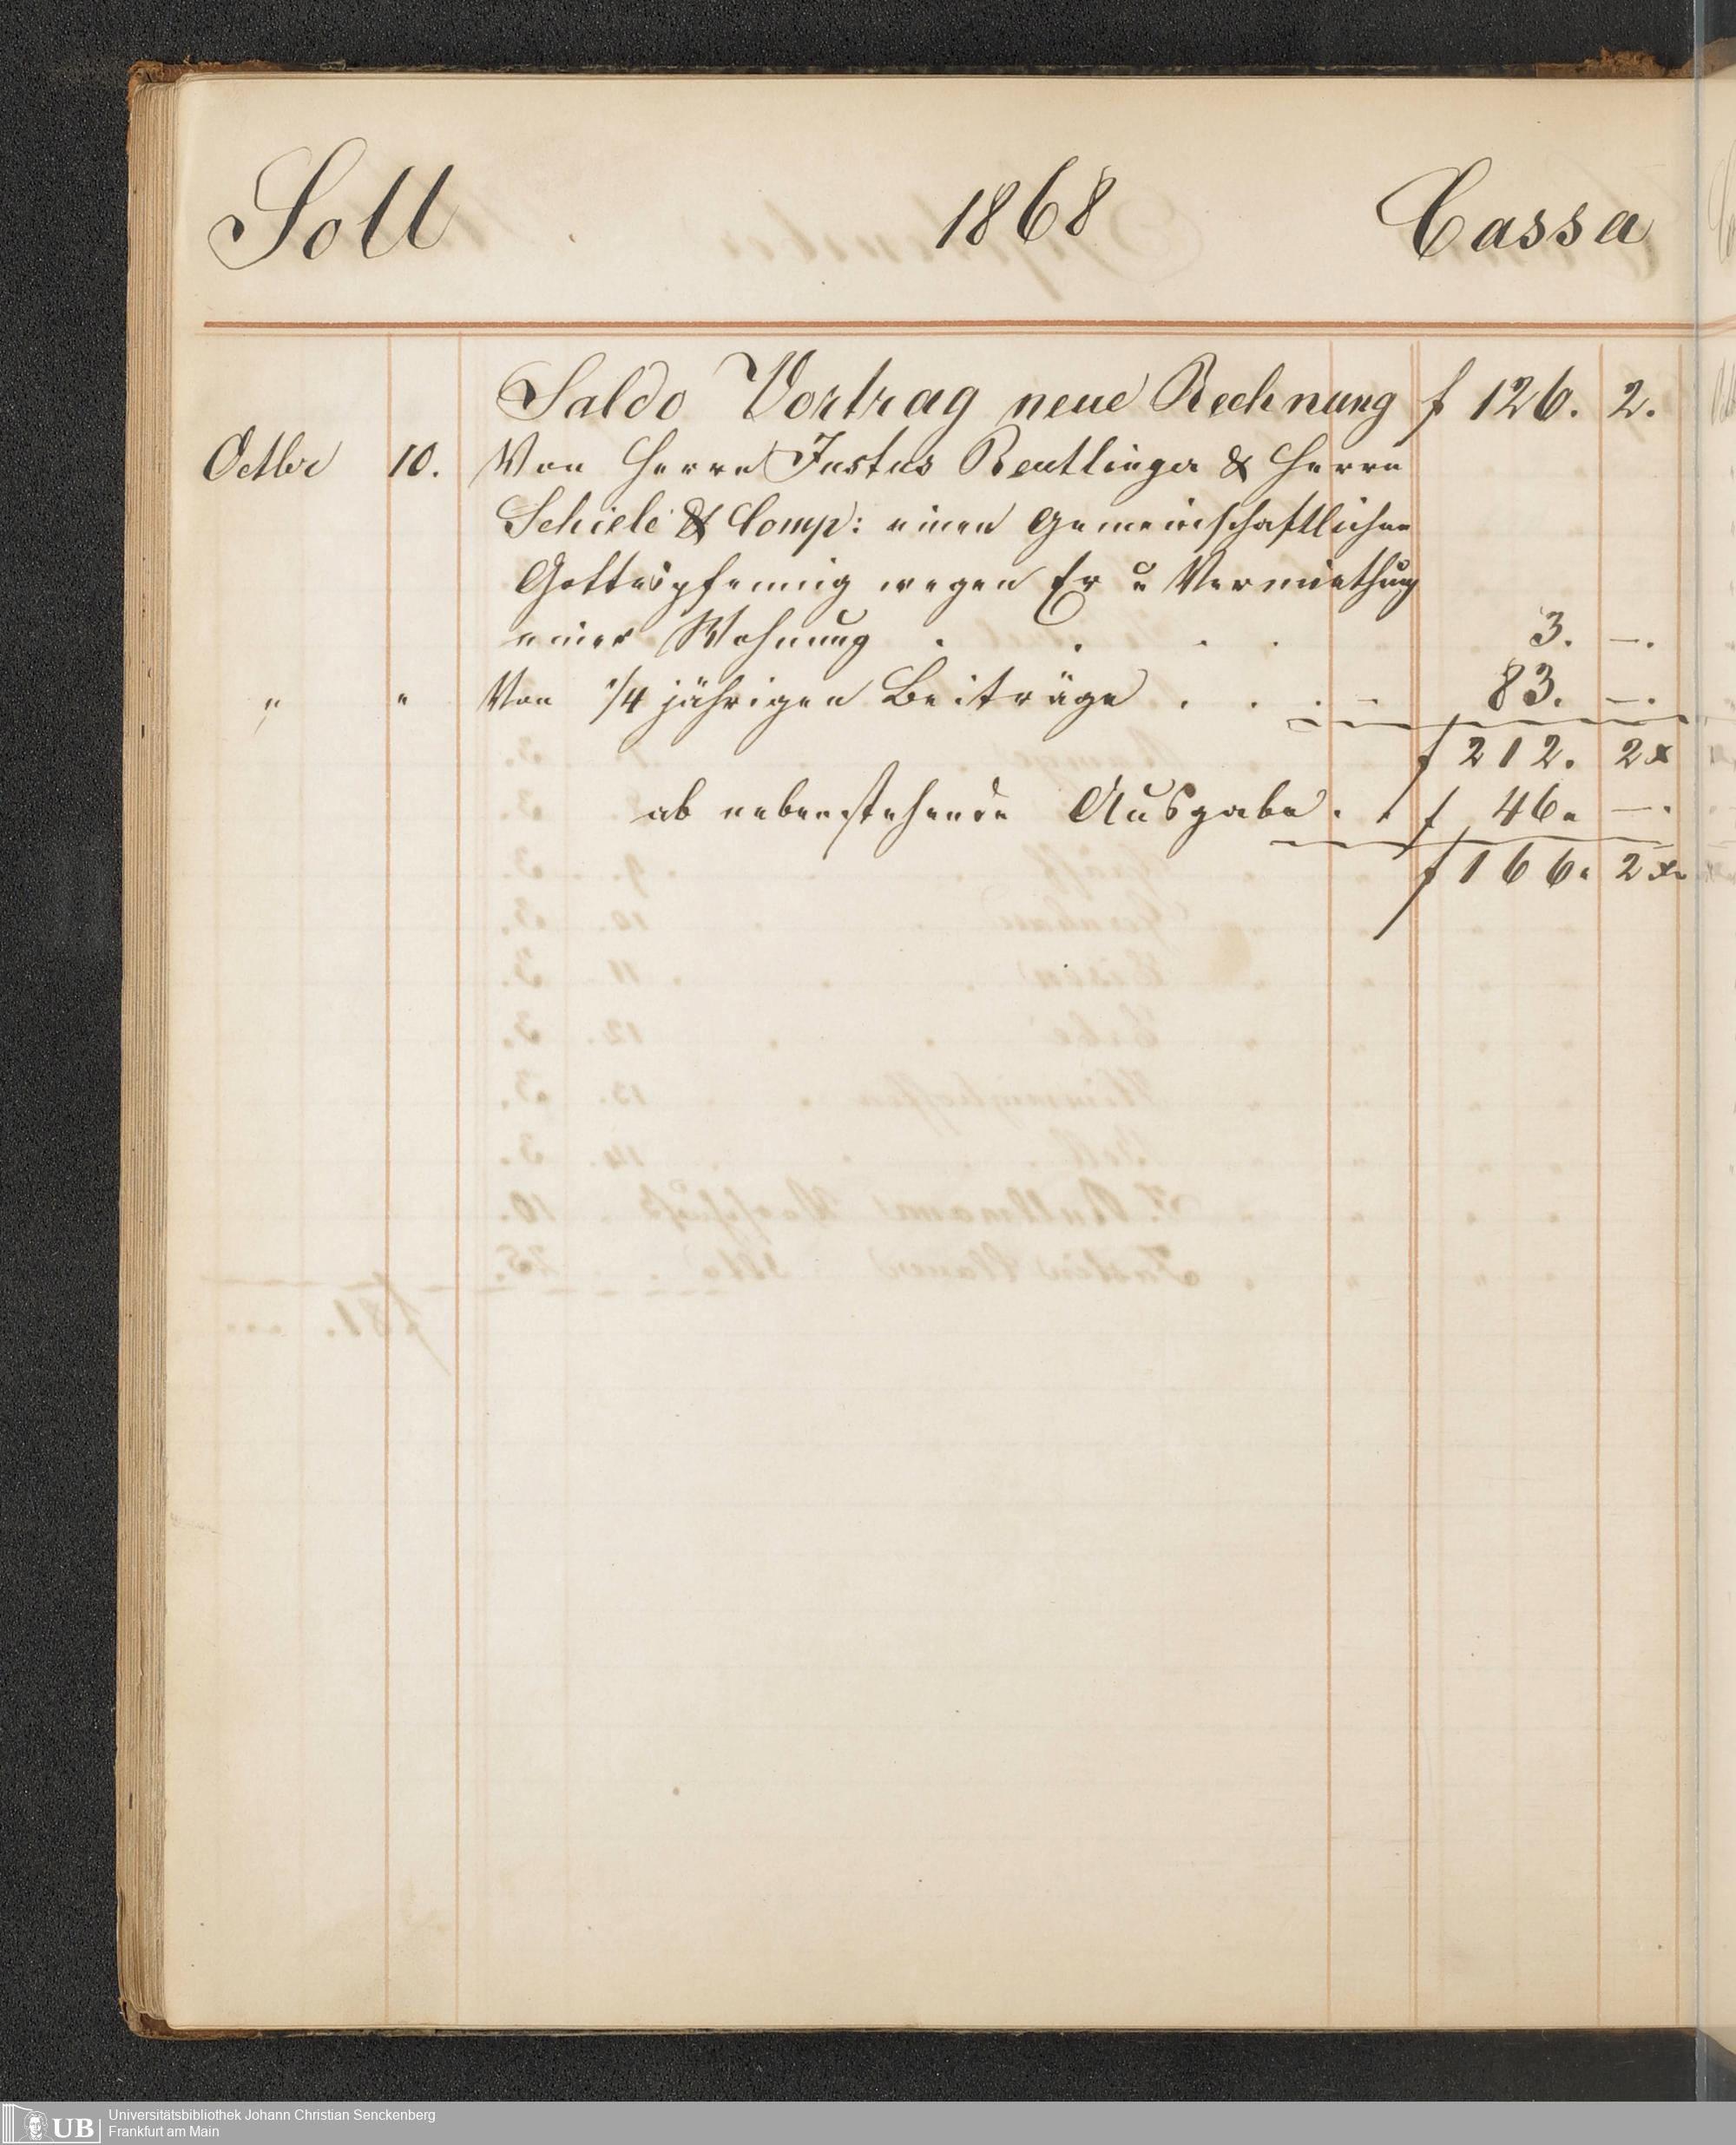 Soll 1868 Cassa
Saldo Vortrag neue Rechnung f 126. 2.
Octbr 10. Von Herrn Justus Reutlinger & Herrn
Schiele & Comp: einen Gemeinschaftlichen
Gottespfennig wegen Er u Vermiethung
einer Wohnung . . . . 3. —.
" " Von 1/4 jährigen Beiträge . . . . 83. —.
f 212. 2 x
ab nebenstehende Ausgabe . . f 46. —.
f 166. 2 x.
UB Universitätsbibliothek Johann Christian Senckenberg
Frankfurt am Main